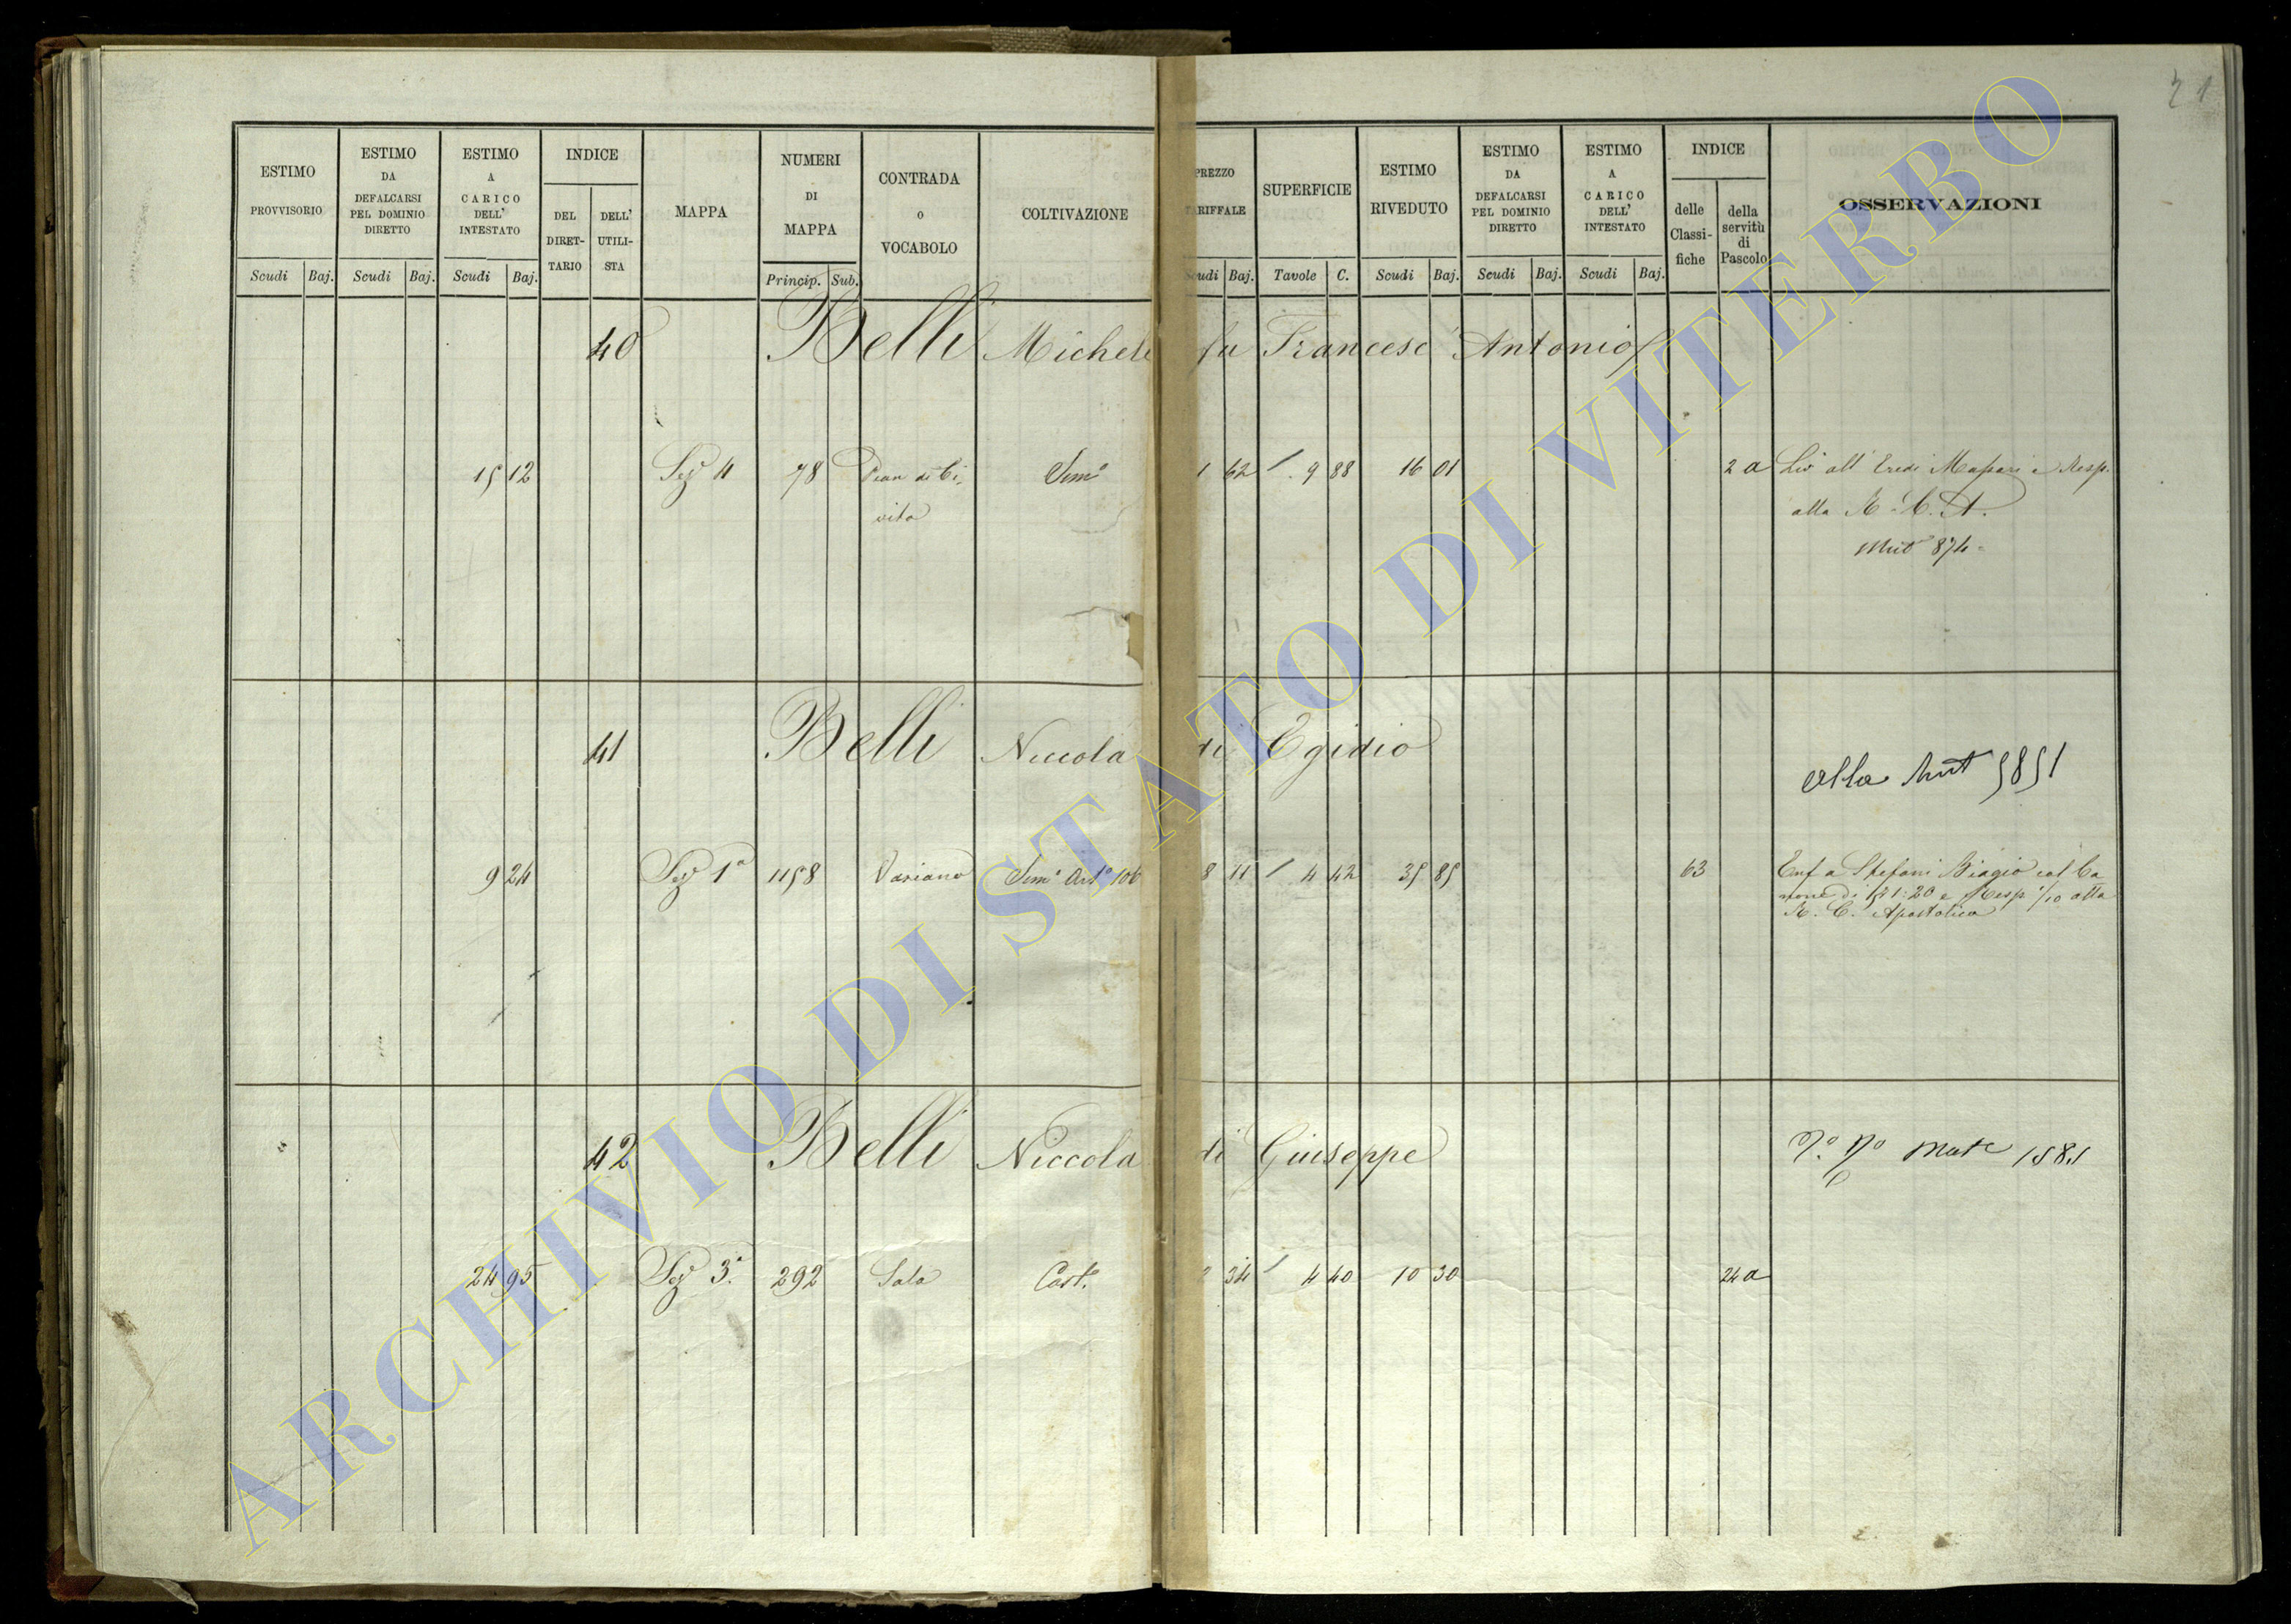 21
ESTIMO PROVVISORIO
Scudi Baj.
ESTIMO DA DEFALCARSI PEL DOMINIO DIRETTO
Scudi Baj.
ESTIMO A CARICO DELL' INTESTATO
Scudi Baj.
INDICE
DEL DIRET-TARIO
DELL' UTILI-STA
MAPPA
NUMERI DI MAPPA
Princip. Sub.
CONTRADA o VOCABOLO
COLTIVAZIONE
PREZZO TARIFFALE
Scudi Baj.
SUPERFICIE
Tavole C.
ESTIMO RIVEDUTO
Scudi Baj.
ESTIMO DA DEFALCARSI PEL DOMINIO DIRETTO
Scudi Baj.
ESTIMO A CARICO DELL' INTESTATO
Scudi Baj.
INDICE
delle Classi-fiche
della servitù di Pascolo
OSSERVAZIONI
40 Belli Michele fu Francesc Antonio
15 12 Sez 4 78 Pian di Ci- Sem.o 1 62 9 88 16 01 2 a Liv all' Eredi e Resp.
vita alla R. C. A.
Mut 874
41 Belli Niccola di Egidio
Alla Mut 5851
9 24 Sez 1a 1158 Variano Sem.o Arb.o 106 8 11 4 42 35 85 63 Enf a Stefani Biagio col Ca
none di 1:20 e Resp 1/10 alla
R. C. Apostolica
42 Belli Niccola di Giuseppe
1581
24 95 Sez 3a 292 Sala Cast. 2 34 4 40 10 30 24 a
ARCHIVIO DI STATO DI VITERBO